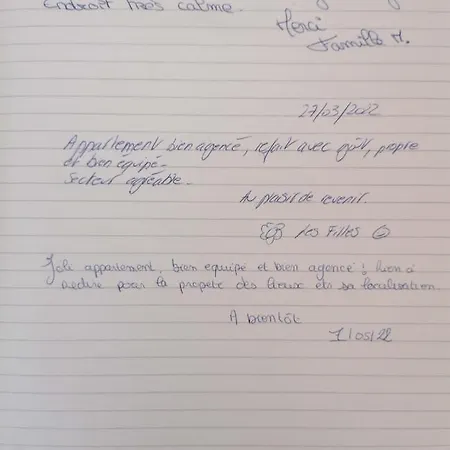 Endroit très calme.
Merci
Famille M.
27/03/2022
Appartement bien agencé, refait avec goût, propre
et bien équipé.
Secteur agréable.
Au plaisir de revenir.
Les Filles
Joli appartement, bien equipé et bien agencé! Rien à
redire pour la propreté des lieux et sa localisation.
A bientôt
1/05/22